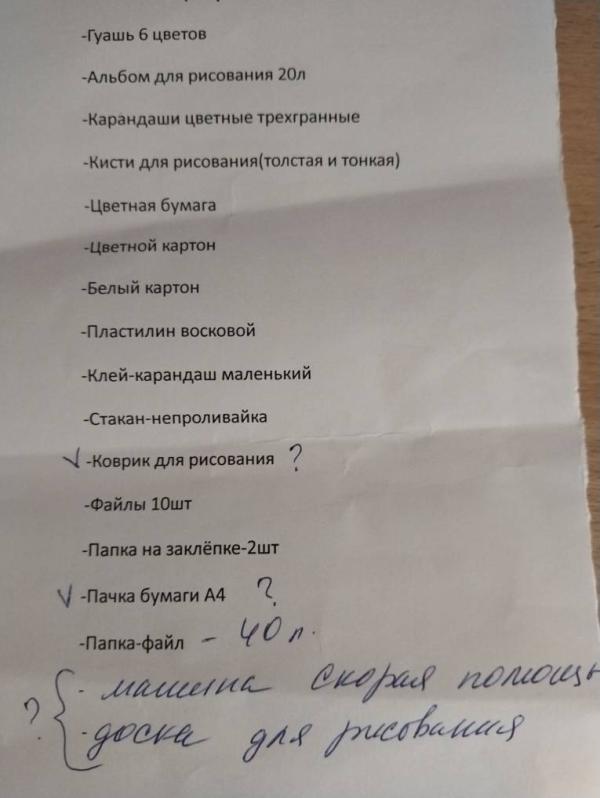 -Гуашь 6 цветов
-Альбом для рисования 20л
-Карандаши цветные трехгранные
-Кисти для рисования(толстая и тонкая)
-Цветная бумага
-Цветной картон
-Белый картон
-Пластилин восковой
-Клей-карандаш маленький
-Стакан-непроливайка
✓ -Коврик для рисования ?
-Файлы 10шт
-Папка на заклёпке-2шт
✓ -Пачка бумаги А4 ?
-Папка-файл - 40 л.
? { - машина скорая помощь
- доска для рисования